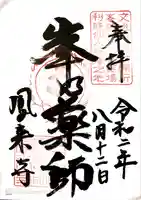 奉拝
令和二年
八月十二日
峯の薬師
鳳来寺